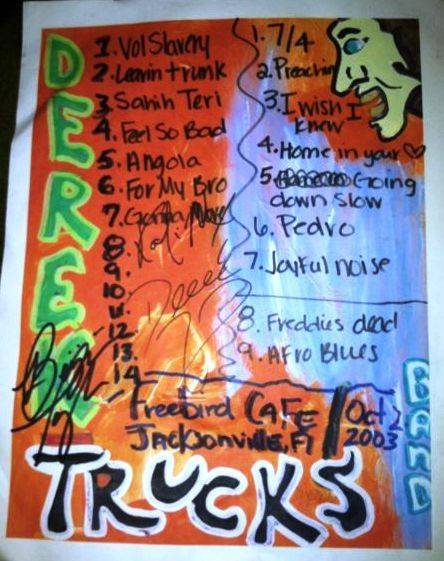 DEREK
1. Vol Slavery
2. Leavin trunk
3. Sahib Teri
4. Feel So Bad
5. Angola
6. For My Bro
7. Gonna Move
8.
9.
10.
11.
12.
13.
14
1. 7/4
2. Preachin
3. I wish I
knew
4. Home in your ♡
5. Going
down slow
6. Pedro
7. Joyful noise
8. Freddies dead
9. Afro Blues
Freebird CAFE / Oct 2
Jacksonville, Fl 2003
BAND
TRUCKS